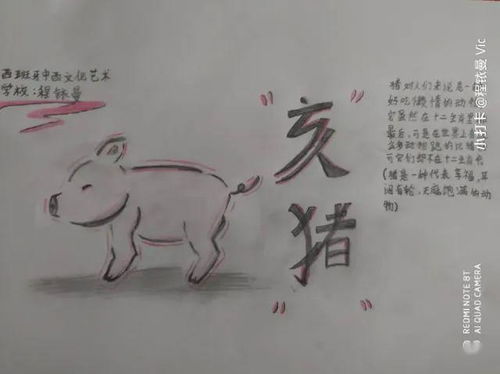 西班牙中西文化艺术
学校:程铱曼
"亥
猪"
猪对人们来说是一种
好吃懒惰的动物
它虽然在十二生肖里
最后,可是在世界上有
么多动物跑的比猪
可它们都不在十二生肖
(猪是一种代表幸福,耳
阔有轮,天庭饱满的动
物)
小打卡@程铱曼 Vic
REDMI NOTE 8T
AI QUAD CAMERA